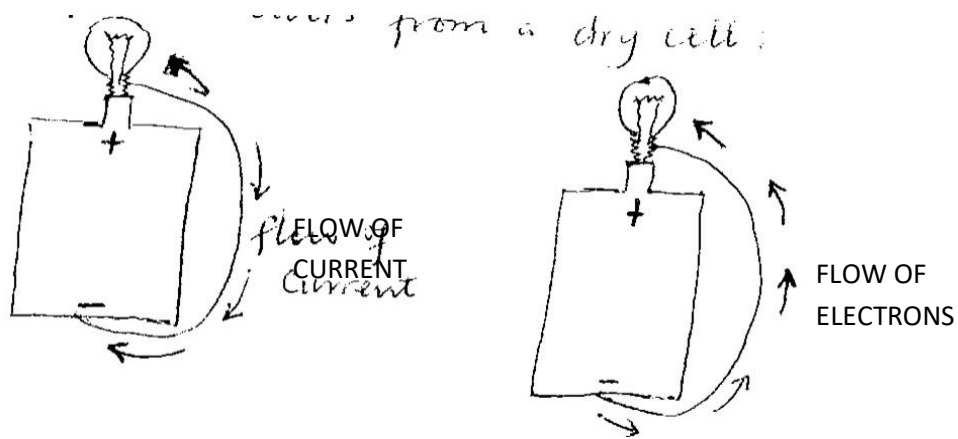 from a dry cell:
+
FLOW OF
CURRENT
flow of
current
-
+
FLOW OF
ELECTRONS
-